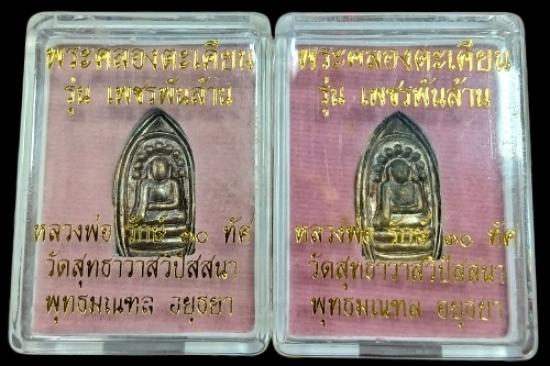 พระคลองตะเคียน
รุ่น เพชรพันล้าน
หลวงพ่อ รักษ์ ๓๐ ทัศ
วัดสุทธาวาสวิปัสสนา
พุทธมณฑล อยุธยา
พระคลองตะเคียน
รุ่น เพชรพันล้าน
หลวงพ่อ รักษ์ ๓๐ ทัศ
วัดสุทธาวาสวิปัสสนา
พุทธมณฑล อยุธยา